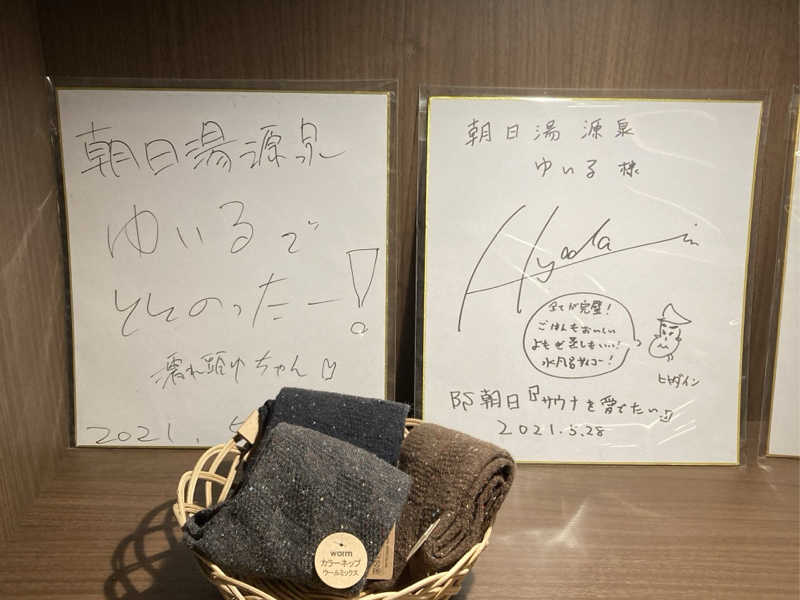 朝日湯源泉
ゆいるで
ととのったー!
濡れ頭巾ちゃん
2021.5
朝日湯源泉
ゆいる様
Hyadain
全てが完璧!
ごはんもおいしい
よもぎ蒸しもいい!
水風呂サイコー!
ヒャダイン
BS朝日『サウナを愛でたい』
2021.5.28
warm
カラーネップ
ウールミックス